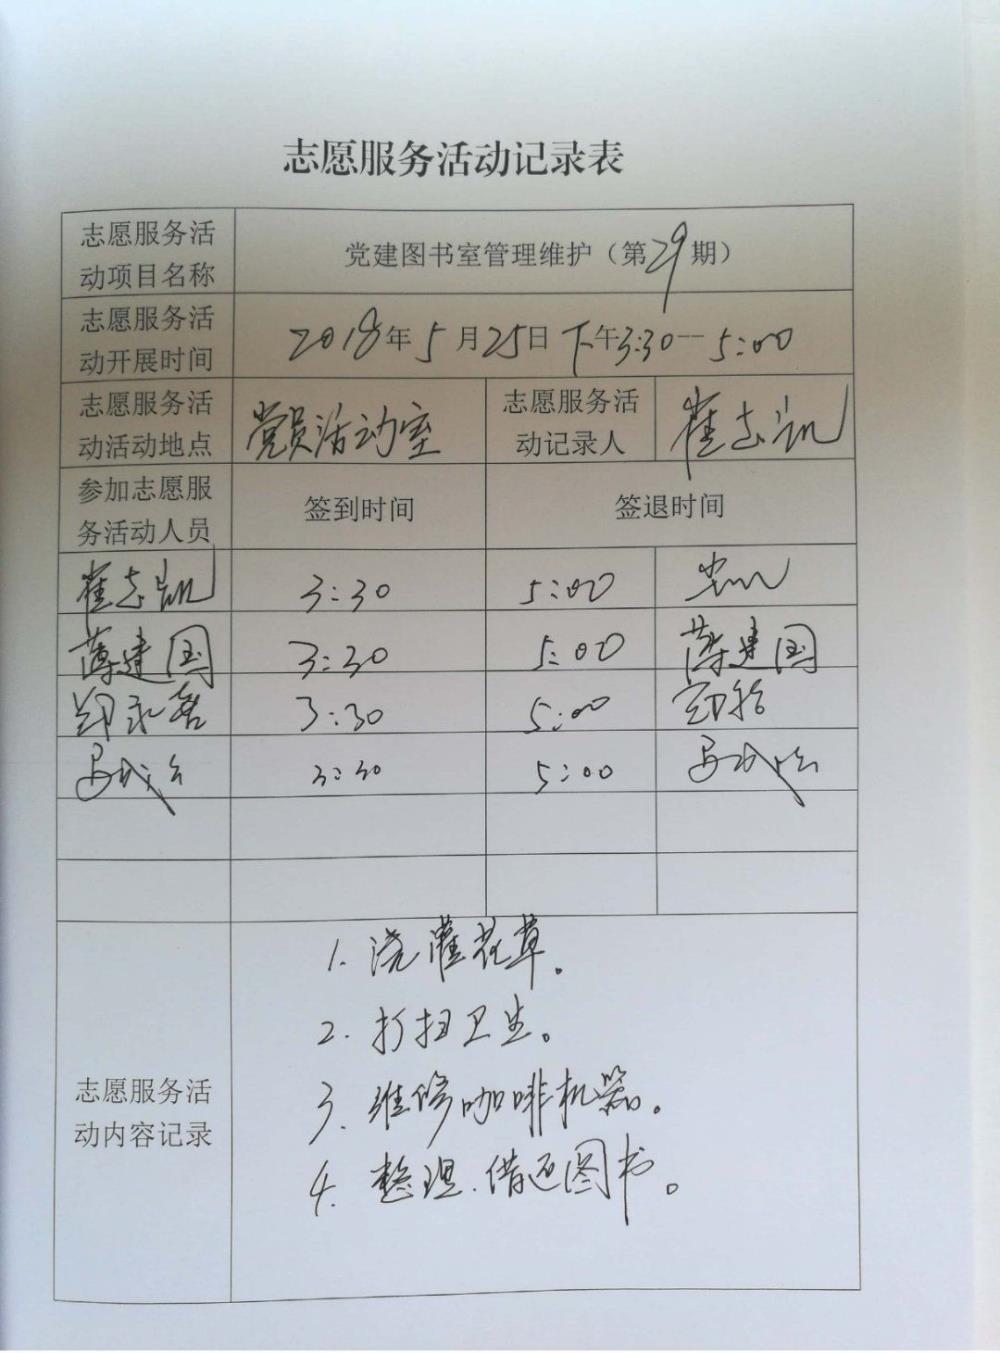 志愿服务活动记录表
志愿服务活
动项目名称
党建图书室管理维护（第29期）
志愿服务活
动开展时间
2018年5月25日下午3:30—5:00
志愿服务活
动活动地点
党员活动室
志愿服务活
动记录人
崔志凯
参加志愿服
务活动人员
签到时间
签退时间
崔志凯
3:30
5:00
薄建国
3:30
5:00
薄建国
3:30
5:00
3:30
5:00
志愿服务活
动内容记录
1.浇灌花草。
2.打扫卫生。
3.维修咖啡机器。
4.整理、借还图书。